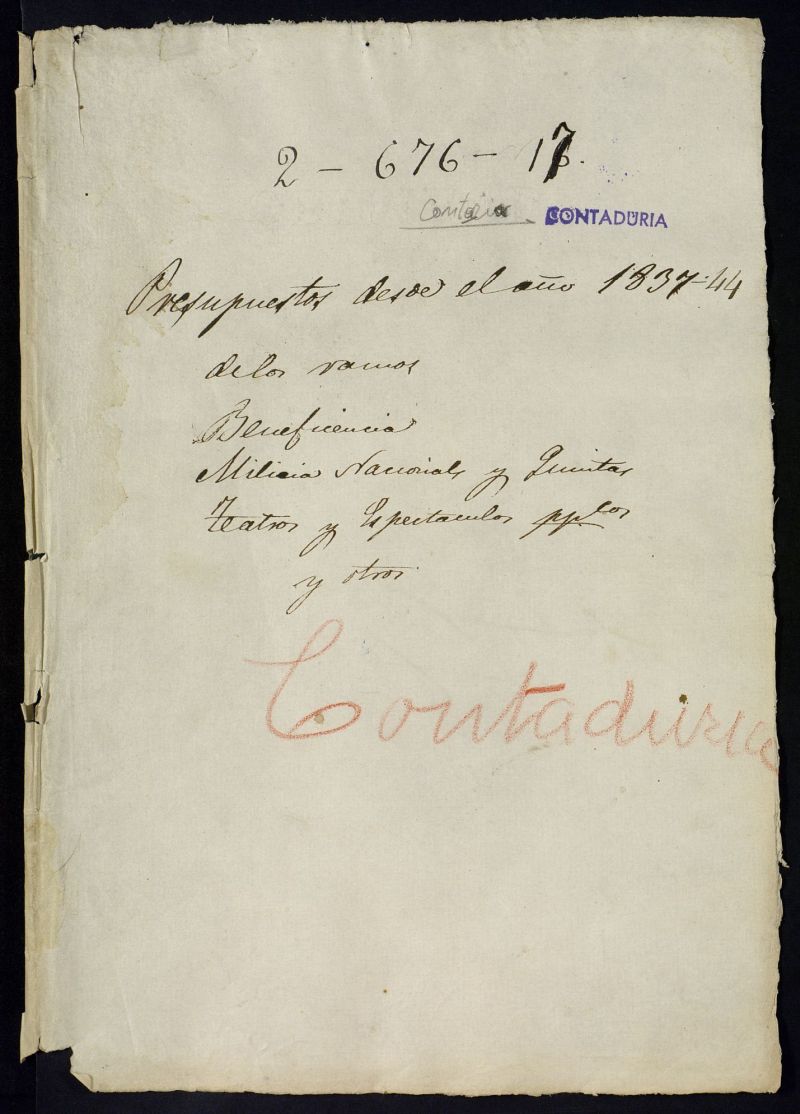 2 - 676 - 17.
Contaria CONTADURIA
Presupuestos desde el año 1837-44
de los ramos
Beneficencia
Milicia Nacional y Quintas
Teatros y Espectaculos ppcos
y otros
Contaduria